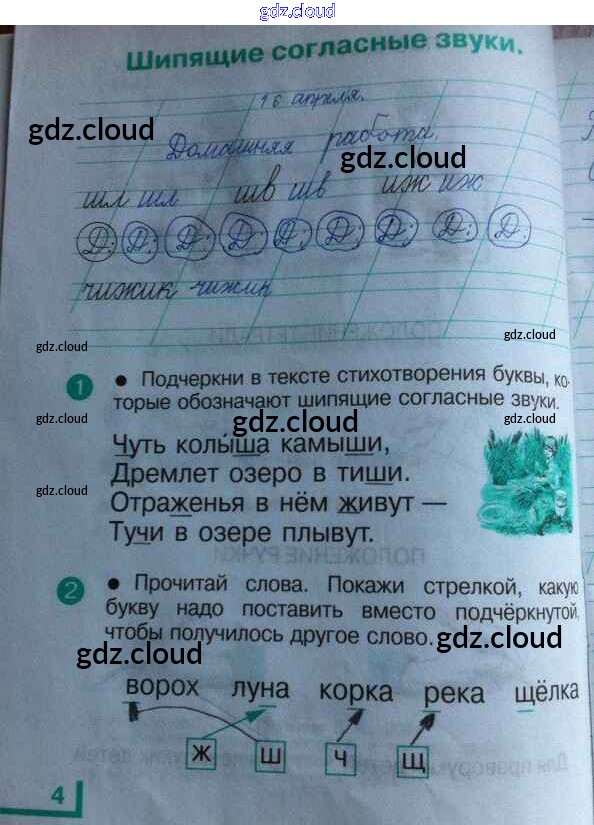 gdz.cloud
Шипящие согласные звуки.
16 апреля.
gdz.cloud
Домашняя работа.
gdz.cloud
шл шл шв шв иж иж
Д: Д: Д: Д: Д: Д: Д: Д: Д:
чижик чижик
gdz.cloud
gdz.cloud
1 • Подчеркни в тексте стихотворения буквы, ко-
торые обозначают шипящие согласные звуки.
gdz.cloud
gdz.cloud
gdz.cloud
Чуть колы́ша камыши,
Дремлет озеро в тиши.
gdz.cloud
Отраженья в нём живут —
Тучи в озере плывут.
2 • Прочитай слова. Покажи стрелкой, какую
букву надо поставить вместо подчёркнутой,
чтобы получилось другое слово.
gdz.cloud
gdz.cloud
ворох луна корка река щёлка
Ж Ш Ч Щ
4
gdz.cloud
gdz.cloud